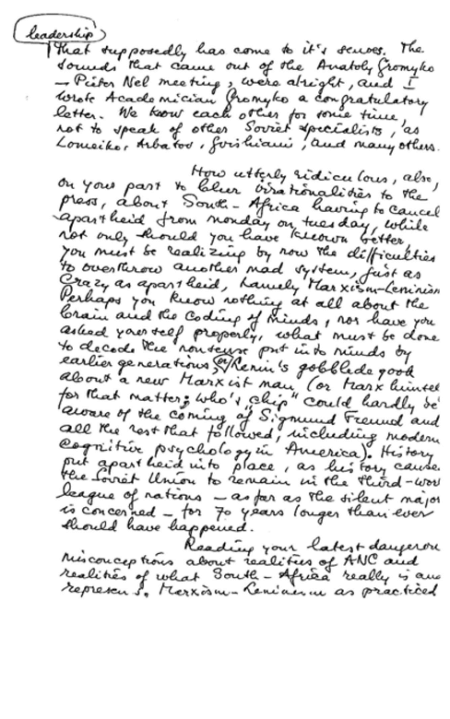 leadership
that supposedly has come to it's senses. The
sounds that came out of the Anatoly Gromyko
- Pieter Nel meeting, were alright, and I
wrote Academician Gromyko a congratulatory
letter. We know each other for some time,
not to speak of other Soviet specialists, as
Lomeiko, Arbatov, Gvishiani, and many others.
How utterly ridiculous, also,
on your part to blur irrationalities to the
press, about South-Africa having to cancel
apartheid from monday on tuesday, while
not only should you have known better
you must be realizing by now the difficulties
to overthrow another mad system, just as
crazy as apartheid, namely Marxism-Leninism
Perhaps you know nothing at all about the
brain and the coding of minds, nor have you
asked yourself properly, what must be done
to decode the nonsense put into minds by
earlier generations, or Lenin's gobblede gook
about a new Marxist man (or Marx himself
for that matter; who's "chip" could hardly be
aware of the coming of Sigmund Freund and
all the rest that followed, including modern
cognitive psychology in America). History
put apartheid into place, as history caused
the Soviet Union to remain in the third-world
league of nations - as far as the silent major
is concerned - for 70 years longer than ever
should have happened.
Reading your latest dangerou
misconceptions about realities of ANC and
realities of what South-Africa really is and
represents. Marxism-Leninism as practiced